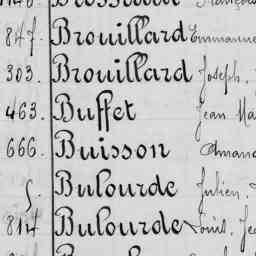 847. Brouillard Emmanue
303. Brouillard Joseph.
463. Buffet Jean Ma
666. Buisson Amand
5. Bulourde Julien.
814 Bulourde Louis. Je